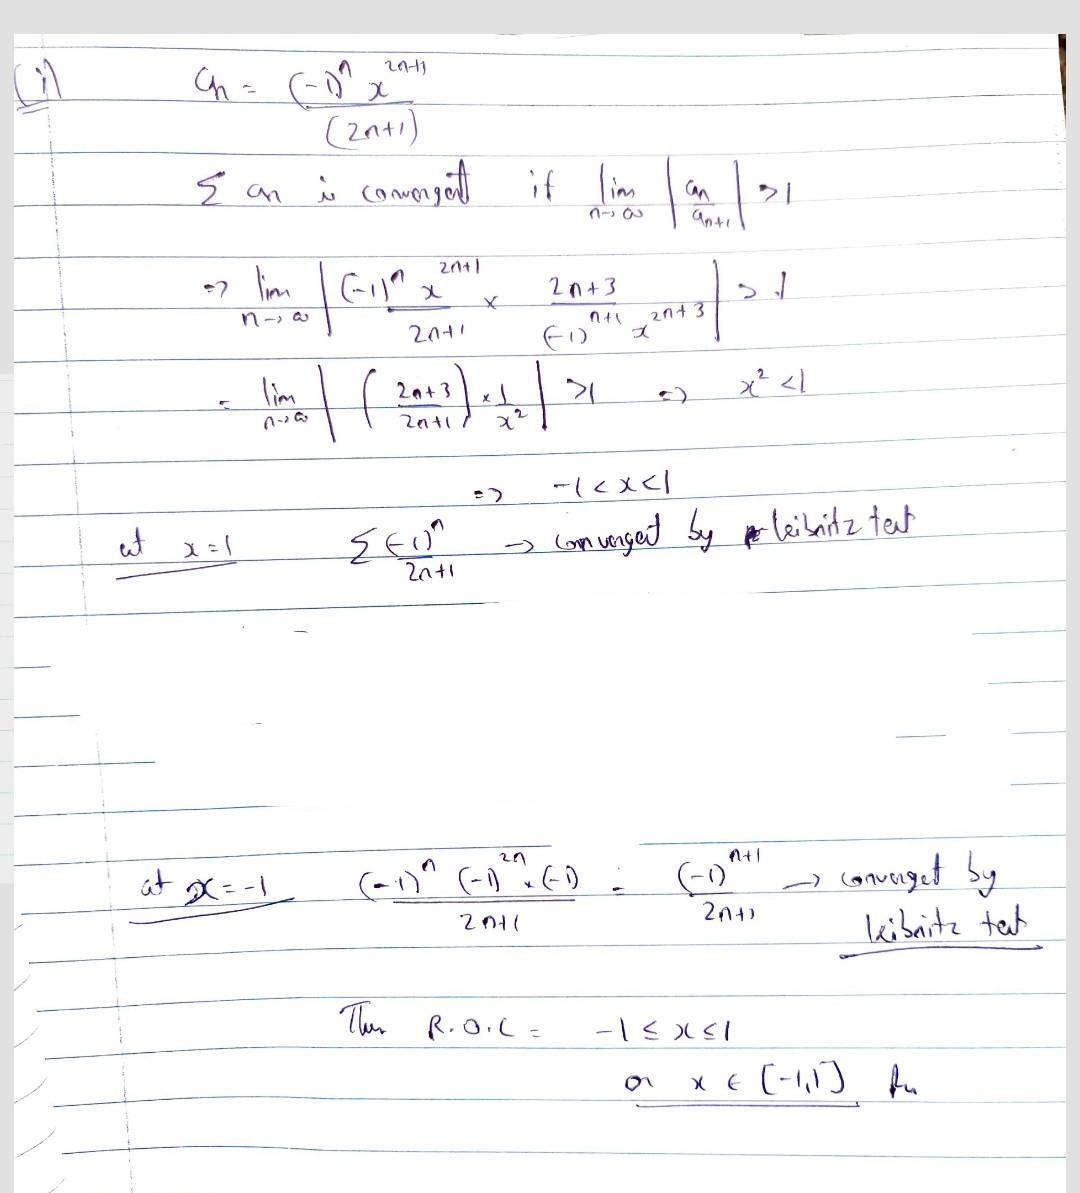 (i) aₙ = (-1)ⁿ x²ⁿ⁺¹ / (2n+1)
Σ an is convergent if lim n→∞ |an / aₙ₊₁| >1
=> lim n→∞ | (-1)ⁿ x²ⁿ⁺¹ / 2n+1 × 2n+3 / (-1)ⁿ⁺¹ x²ⁿ⁺³ | >1
= lim n→∞ | (2n+3 / 2n+1) × 1 / x² | >1 => x² <1
=> -1 < x < 1
at x=1 Σ (-1)ⁿ / 2n+1 → convergent by leibnitz test
at x = -1 (-1)ⁿ (-1)²ⁿ × (-1) / 2n+1 = (-1)ⁿ⁺¹ / 2n+1 → convergent by
leibnitz test
Then R.O.C = -1 ≤ x ≤ 1
or x ∈ [-1,1]